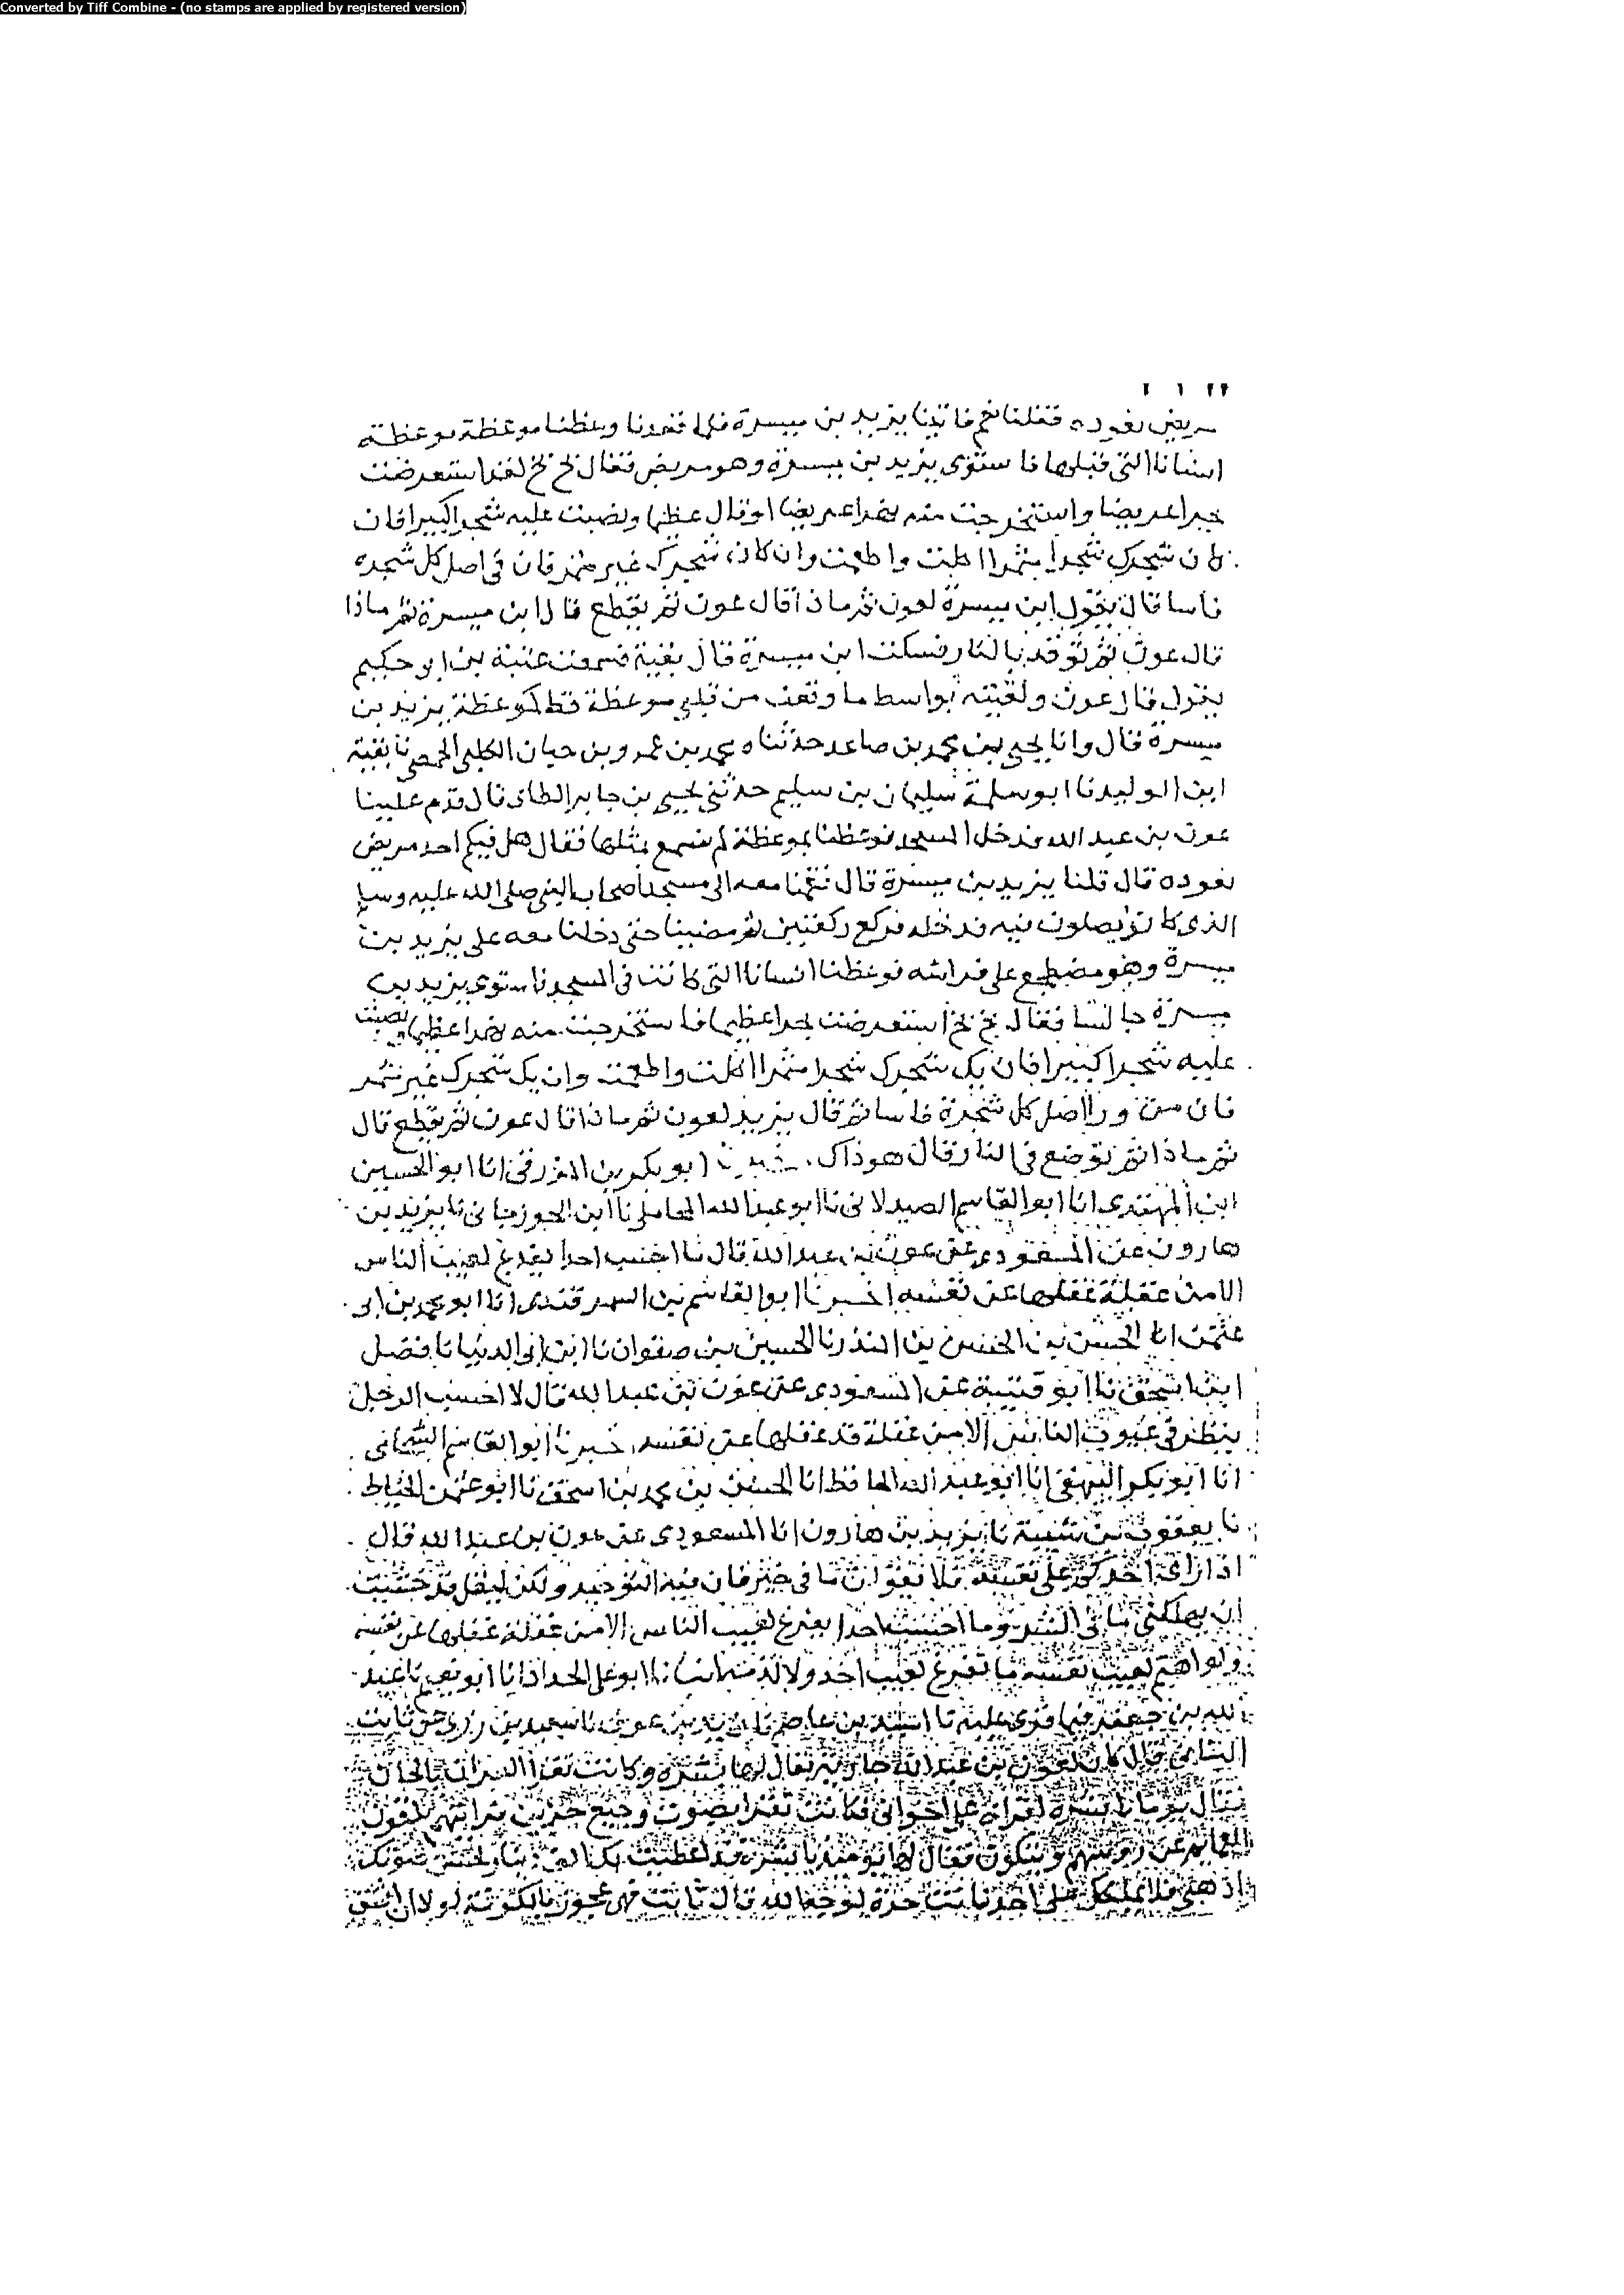 Converted by Tiff Combine - (no stamps are applied by registered version)
مريض نعوده فقلنا نعم فاتينا يزيد بن ميسرة فلما قعدنا وعظنا موعظة موعظة
انسانا التي قبلها فاستوى يزيد بن ميسرة وهو مريض فقال بخ بخ لقد استعرضت
بحرا عريضا واستخرجت منه نهرا عريضا او قال عظيما ونصبت عليه شجرا كبيرا فان
كان شجرك شجرا مثمرا اكلت واطعمت وان كان شجرك غير مثمر فان في اصل كل شجره
فاسا قال يقول ابن ميسرة لعون ثم ماذا قال عون ثم يقطع قال ابن ميسرة ثم ماذا
قال عون ثم توقد بالنار فسكت ابن ميسرة قال بقية فسمعت عتبة بن ابو حكيم
يقول قال عون ولقيته بواسط ما وقعت من قلبي موعظة قط كموعظة يزيد بن
ميسرة قال وانا يحيى بن محمد بن صاعد حدثناه محمد بن عمرو بن حيان الكلبي الحمصي نا بقية
ابن الوليد نا ابو سلمة سليمان بن سليم حدثني يحيى بن جابر الطائ قال قدم علينا
عون بن عبد الله فدخل المسجد فوعظنا بموعظة لم نسمع بمثلها فقال هل فيكم احد مريض
نعوده قال قلنا يزيد بن ميسرة قال فقمنا معه الى مسجد اصحاب النبي صلى الله عليه وسلم
الذي كانوا يصلون فيه فدخله فركع ركعتين ثم مضينا حتى دخلنا معه على يزيد بن
ميسرة وهو مضطجع على فراشه فوعظنا انسانا التي كانت في المسجد فاستوى يزيد بن
ميسرة جالسا فقال بخ بخ استعرضت بحرا عظيما فاستخرجت منه نهرا عظيما ونصبت
عليه شجرا كبيرا فان يك شجرك شجرا مثمرا اكلت واطعمت وان يك شجرك غير مثمر
فان من ورا اصل كل شجرة فاسا ثم قال يزيد لعون ثم ماذا قال عون ثم يقطع قال
ثم ماذا ثم توضع في النار قال هو ذاك ابو بكر بن المزرفي انا ابو الحسين
ابن المهتدي انا ابو القاسم الصيدلاني نا ابو عبد الله المحاملي نا ابن الجوزجاني نا يزيد بن
هارون عن المسعودي عن عون بن عبد الله قال ما احسب احدا يفرغ لعيب الناس
الا من غفلة غفلها عن نفسه اخبرنا ابو القاسم بن السمرقندي انا ابو محمد بن ابي
عثمن انا الحسن بن الحسن بن المنذر نا الحسين بن صفوان نا ابن ابي الدنيا نا فضل
ابن اسحق نا ابو قتيبة عن المسعودي عن عون بن عبد الله قال لا احسب الرجل
ينظر في عيوب الناس الا من غفلة قد غفلها عن نفسه اخبرنا ابو القاسم الشحامي
انا ابو بكر البيهقي انا ابو عبد الله الحافظ انا الحسن بن محمد بن اسحق نا ابو عثمن الخياط
نا يعقوب بن شيبة نا يزيد بن هارون انا المسعودي عن عون بن عبد الله قال
اذا ازرى احدكم على نفسه فلا يقولن ما في خير فان فيه التوحيد ولكن ليقل قد خشيت
ان يهلكني ما في الشر وما احسب احدا يفرغ لعيب الناس الا من غفلة غفلها عن نفسه
ولو اهتم لعيب نفسه ما تفرغ لعيب احد ولا لذمه انبانا ابو علي الحداد انا ابو نعيم نا عبد
الله بن جعفر فيما قرى عليه نا اسيد بن عاصم نا زيد بن عوف نا سعيد بن زربي عن ثابت
البناني قال كان لعون بن عبد الله جارية يقال لها بشرة وكانت تقرا القران بالحان
فقال يوما يا بشرة اقرائ على اخواني فكانت تقرا بصوت وجيع حزين فرايتهم يلقون
العمايم عن رؤسهم ويبكون فقال لها يوما يا بشرة قد اعطيت بك الف دينار لحسن صوتك
اذهبي فلا يملكك علي احد فانت حرة لوجه الله قال ثابت فهي عجوز بالكوفة لولا ان اشق